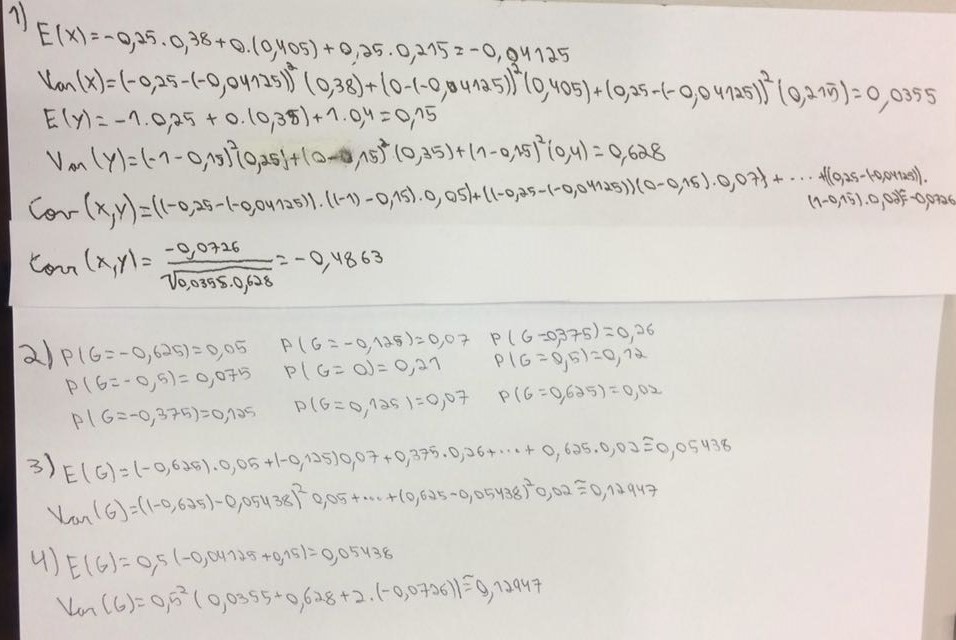 1)
E(X)=-0,25.0,38+0.(0,405)+0,25.0,215=-0,04125
Var(X)=(-0,25-(-0,04125))²(0,38)+(0-(-0,04125))²(0,405)+(0,25-(-0,04125))²(0,215)=0,0355
E(Y)=-1.0,25+0.(0,35)+1.0,4=0,15
Var(Y)=(-1-0,15)²(0,25)+(0-0,15)²(0,35)+(1-0,15)²(0,4)=0,628
Cov(X,Y)=((-0,25-(-0,04125)).((-1)-0,15).0,05)+((-0,25-(-0,04125))(0-0,15).0,07)+...+((0,25-(-0,04125)).
(1-0,15).0,02)=-0,0726
Corr(X,Y)=-0,0726/√0,0355.0,628=-0,4863
2) P(G=-0,625)=0,05 P(G=-0,125)=0,07 P(G=0,375)=0,26
P(G=-0,5)=0,075 P(G=0)=0,21 P(G=0,5)=0,12
P(G=-0,375)=0,125 P(G=0,125)=0,07 P(G=0,625)=0,02
3) E(G)=(-0,625).0,05+(-0,125)0,07+0,375.0,26+...+0,625.0,02≅0,05438
Var(G)=((-0,625)-0,05438)²0,05+...+(0,625-0,05438)²0,02≅0,12947
4) E(G)=0,5(-0,04125+0,15)=0,05438
Var(G)=0,5²(0,0355+0,628+2.(-0,0726))≅0,12947